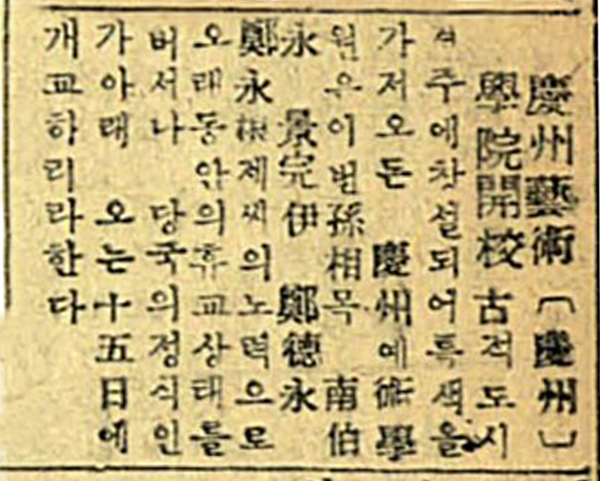 慶州藝術〔慶州〕
學院開校 古적도시
주에창설되어특색을
가저오든 慶州예術學
원은이번孫相목 南伯
永 完伊 鄭德永
鄭永제씨의노력으로
오래동안의휴교상태를
버서나 당국의정식인
가아래 오는十五日에
개교하리라한다